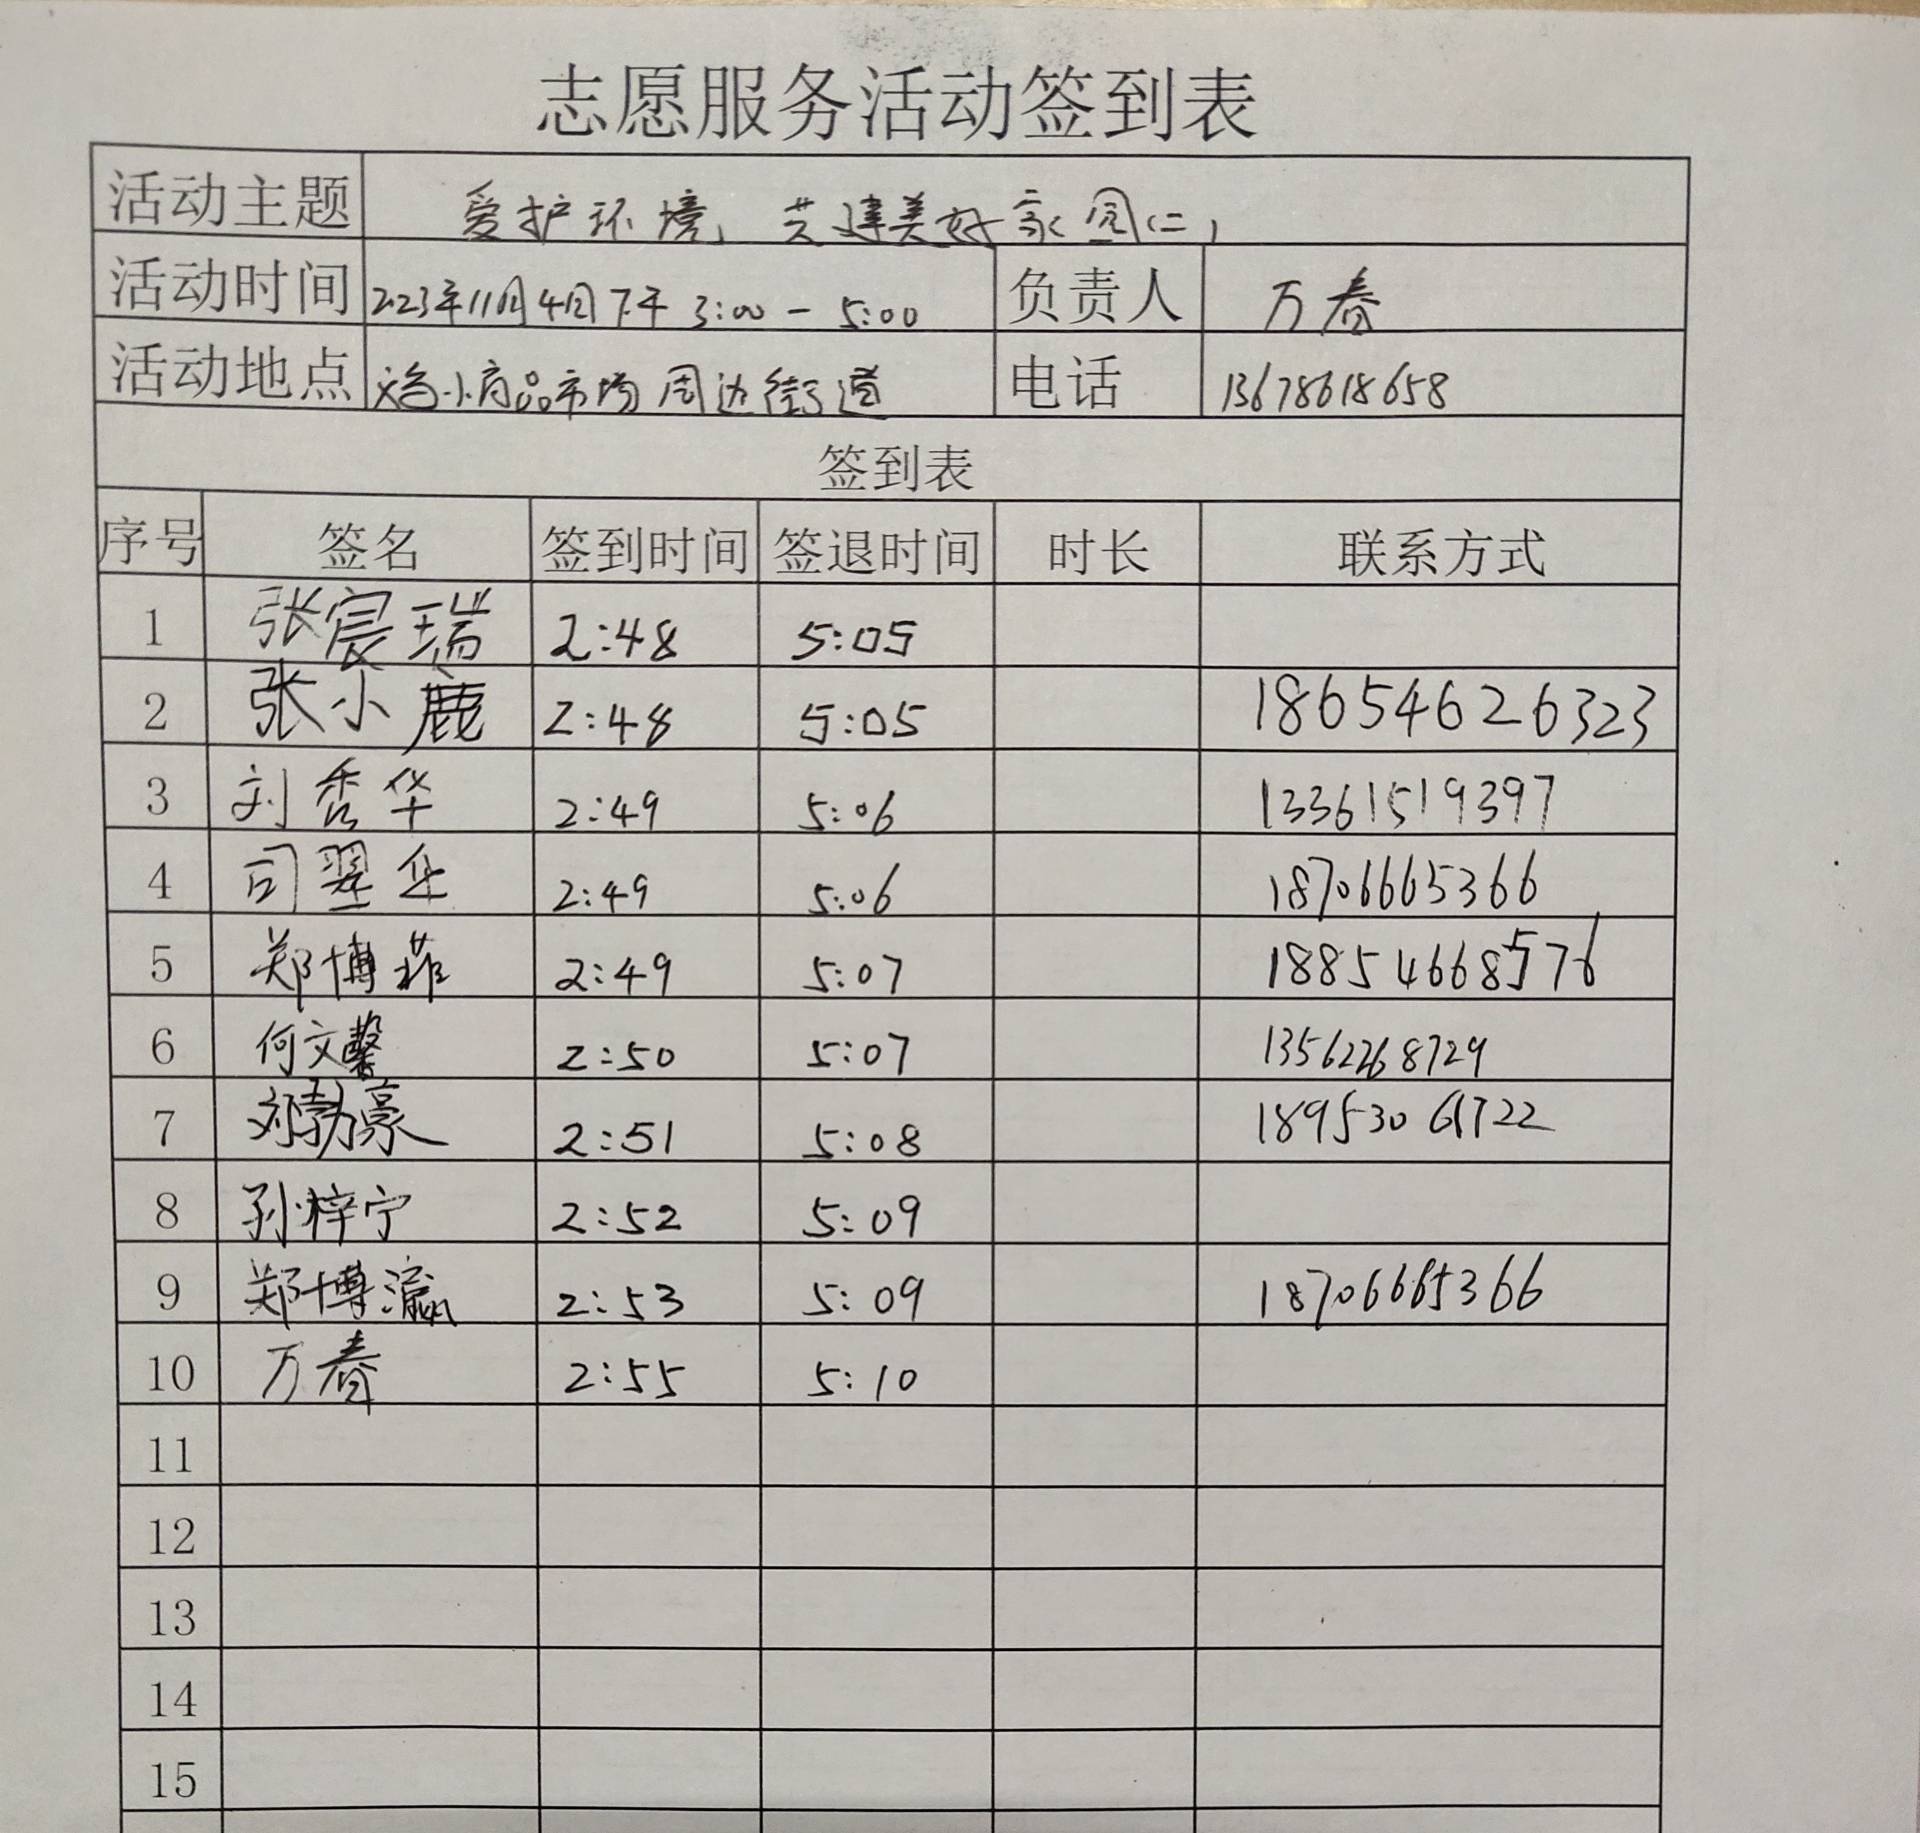 志愿服务活动签到表
活动主题 爱护环境,共建美好家园(二)
活动时间 2023年11月4日下午 3:00 — 5:00 负责人 万春
活动地点 小商品市场周边街道 电话 13678618658
签到表
序号 签名 签到时间 签退时间 时长 联系方式
1 张宸瑞 2:48 5:05
2 张小鹿 2:48 5:05 18654626323
3 刘秀华 2:49 5:06 13361519397
4 司翠华 2:49 5:06 18706665366
5 郑博菲 2:49 5:07 18854668576
6 何文馨 2:50 5:07 13562268729
7 刘勃豪 2:51 5:08 18953061722
8 孙梓宁 2:52 5:09
9 郑博瀛 2:53 5:09 18706665366
10 万春 2:55 5:10
11
12
13
14
15